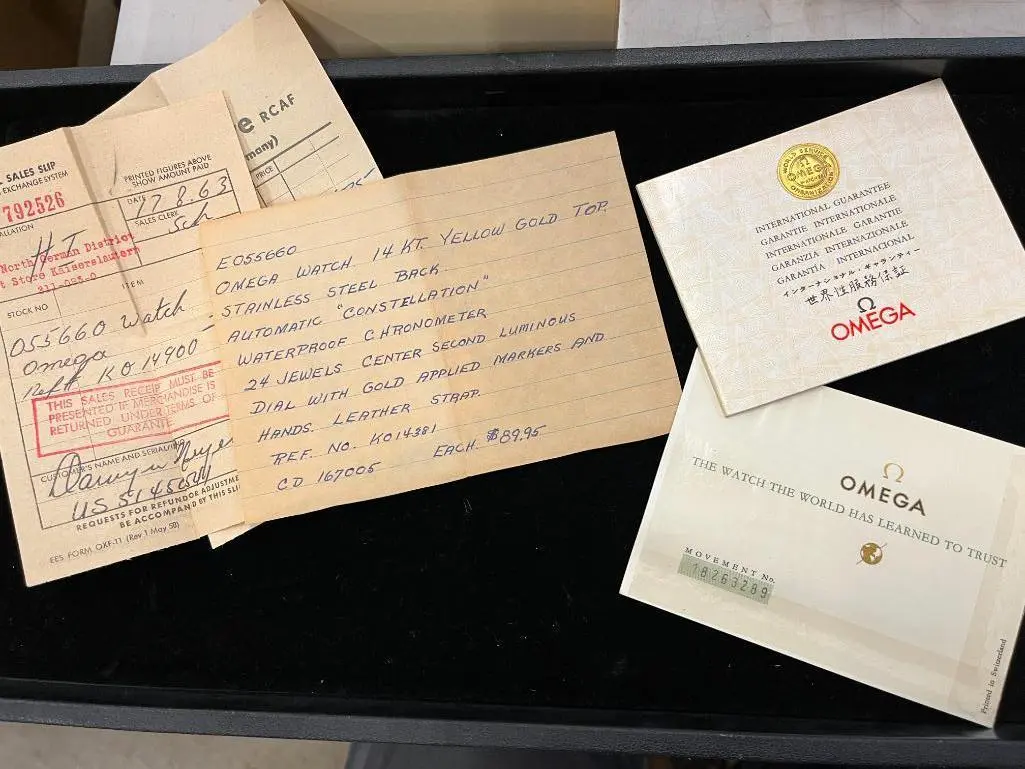 SALES SLIP
EXCHANGE SYSTEM
792526
PRINTED FIGURES ABOVE
SHOW AMOUNT PAID
DATE
17.8.63
SALES CLERK
Sch
North German District
Store Kaiserslautern
211-023-0
STOCK NO
ITEM
055660 Watch
Omega
Ref# KO 14900
THIS SALES RECEIPT MUST BE
PRESENTED IF MERCHANDISE IS
RETURNED UNDER TERMS OF
GUARANTE
CUSTOMER'S NAME AND SERIAL NO
REQUESTS FOR REFUND OR ADJUSTME
BE ACCOMPANI BY THIS SLI
EES FORM OXF-11 (Rev 1 May 58)
e RCAF
many)
PRICE
E055660
OMEGA WATCH 14 KT. YELLOW GOLD TOP.
STAINLESS STEEL BACK
AUTOMATIC "CONSTELLATION"
WATERPROOF CHRONOMETER
24 JEWELS CENTER SECOND LUMINOUS
DIAL WITH GOLD APPLIED MARKERS AND
HANDS. LEATHER STRAP.
REF. NO. KO14381
CD 167005 EACH $89.95
WORLD SERVICE
Ω
OMEGA
WATCHES
ORGANIZATION
INTERNATIONAL GUARANTEE
GARANTIE INTERNATIONALE
INTERNATIONALE GARANTIE
GARANZIA INTERNAZIONALE
GARANTÍA INTERNACIONAL
インターナショナル・ギャランティー
世界性服務保証
Ω
OMEGA
Ω
OMEGA
THE WATCH THE WORLD HAS LEARNED TO TRUST
MOVEMENT No.
18263289
Printed in Switzerland